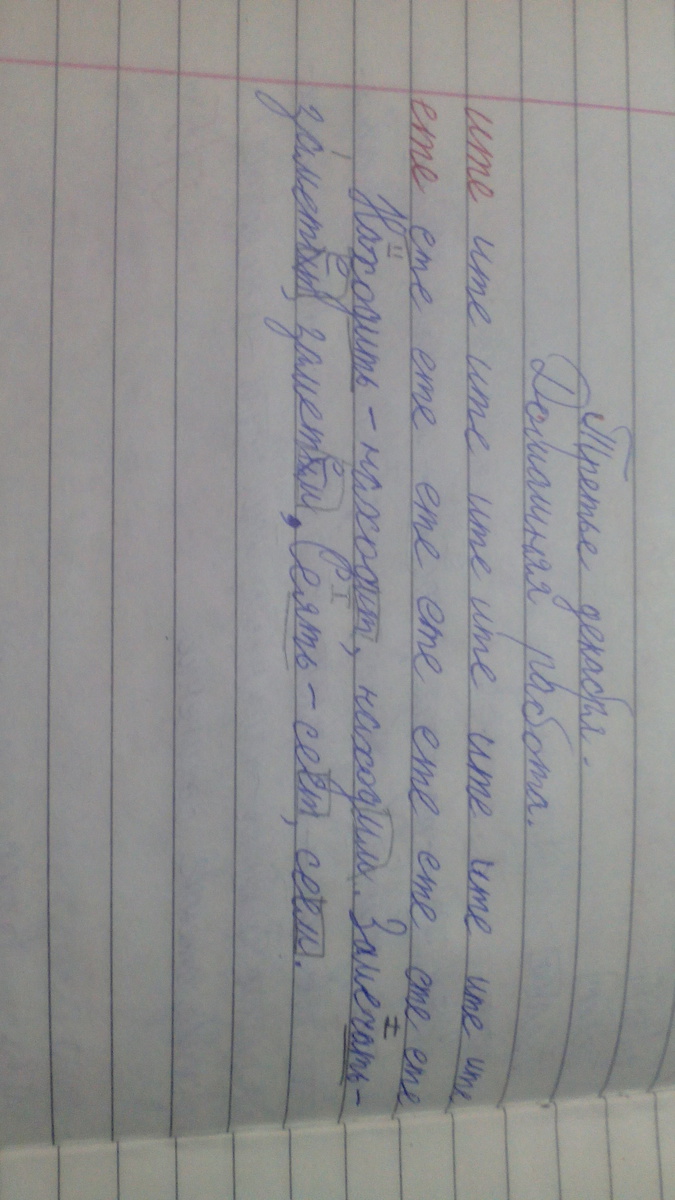 Третье декабря.
Домашняя работа.
ите ите ите ите ите ите ите ите ите
ете ете ете ете ете ете ете ете ете
Находить - находит, находим. Замечать -
заметит, заметим, сеять - сеет, сеем.